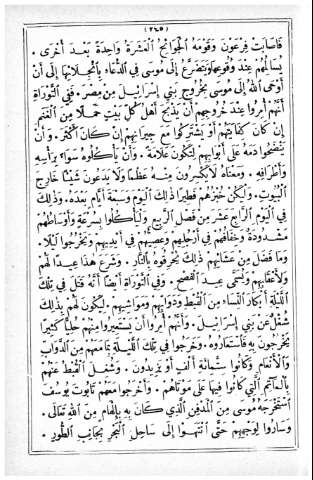 (٢٤٥)
فأصابت فرعون وقومه الجوائح العشرة واحدة بعد أخرى .
يسالمهم عند وقوعها ويتضرع إلى موسى في الدعاء بانجلائها إلى أن
أوحى الله إلى موسى بخروج بني إسرائيل من مصر . ففي التوراة
أنهم أمروا عند خروجهم أن يذبح أهل كل بيت حملا من الغنم
إن كان كفايتهم أو يشتركون مع جيرانهم إن كان أكثر . وأن
ينضحوا دمه على أبوابهم لتكون علامة . وأن يأكلوه سواء برأسه
وأطرافه . ومعناه لا يكسرون منه عظما ولا يدعون شيئا خارج
البيوت . وليكن خبزهم فطيرا ذلك اليوم وسبعة أيام بعده . وذلك
في اليوم الرابع عشر من فصل الربيع وليأكلوا بسرعة وأوساطهم
مشدودة وخفافهم في أرجلهم وعصيهم في أيديهم ويخرجوا ليلا .
وما فضل من عشائهم ذلك يحرقوه بالنار . وشرع هذا عيدا لهم
ولأعقابهم ويسمى عيد الفصح . وفي التوراة أيضا أنه قتل في تلك
الليلة أبكار النساء من القبط ودوابهم ومواشيهم . ليكون لهم بذلك
شغل عن بني إسرائيل . وأنهم أمروا أن يستعيروا منهم حليا كثيرا
يخرجون به فاستعاروه . وخرجوا في تلك الليلة بما معهم من الدواب
والأنعام وكانوا ستمائة ألف أو يزيدون . وشغل القبط عنهم
بالمآتم التي كانوا فيها على موتاهم . وأخرجوا معهم تابوت يوسف
استخرجه موسى من المدفن الذي كان به بإلهام من الله تعالى .
وساروا لوجههم حتى انتهوا إلى ساحل البحر بجانب الطور .